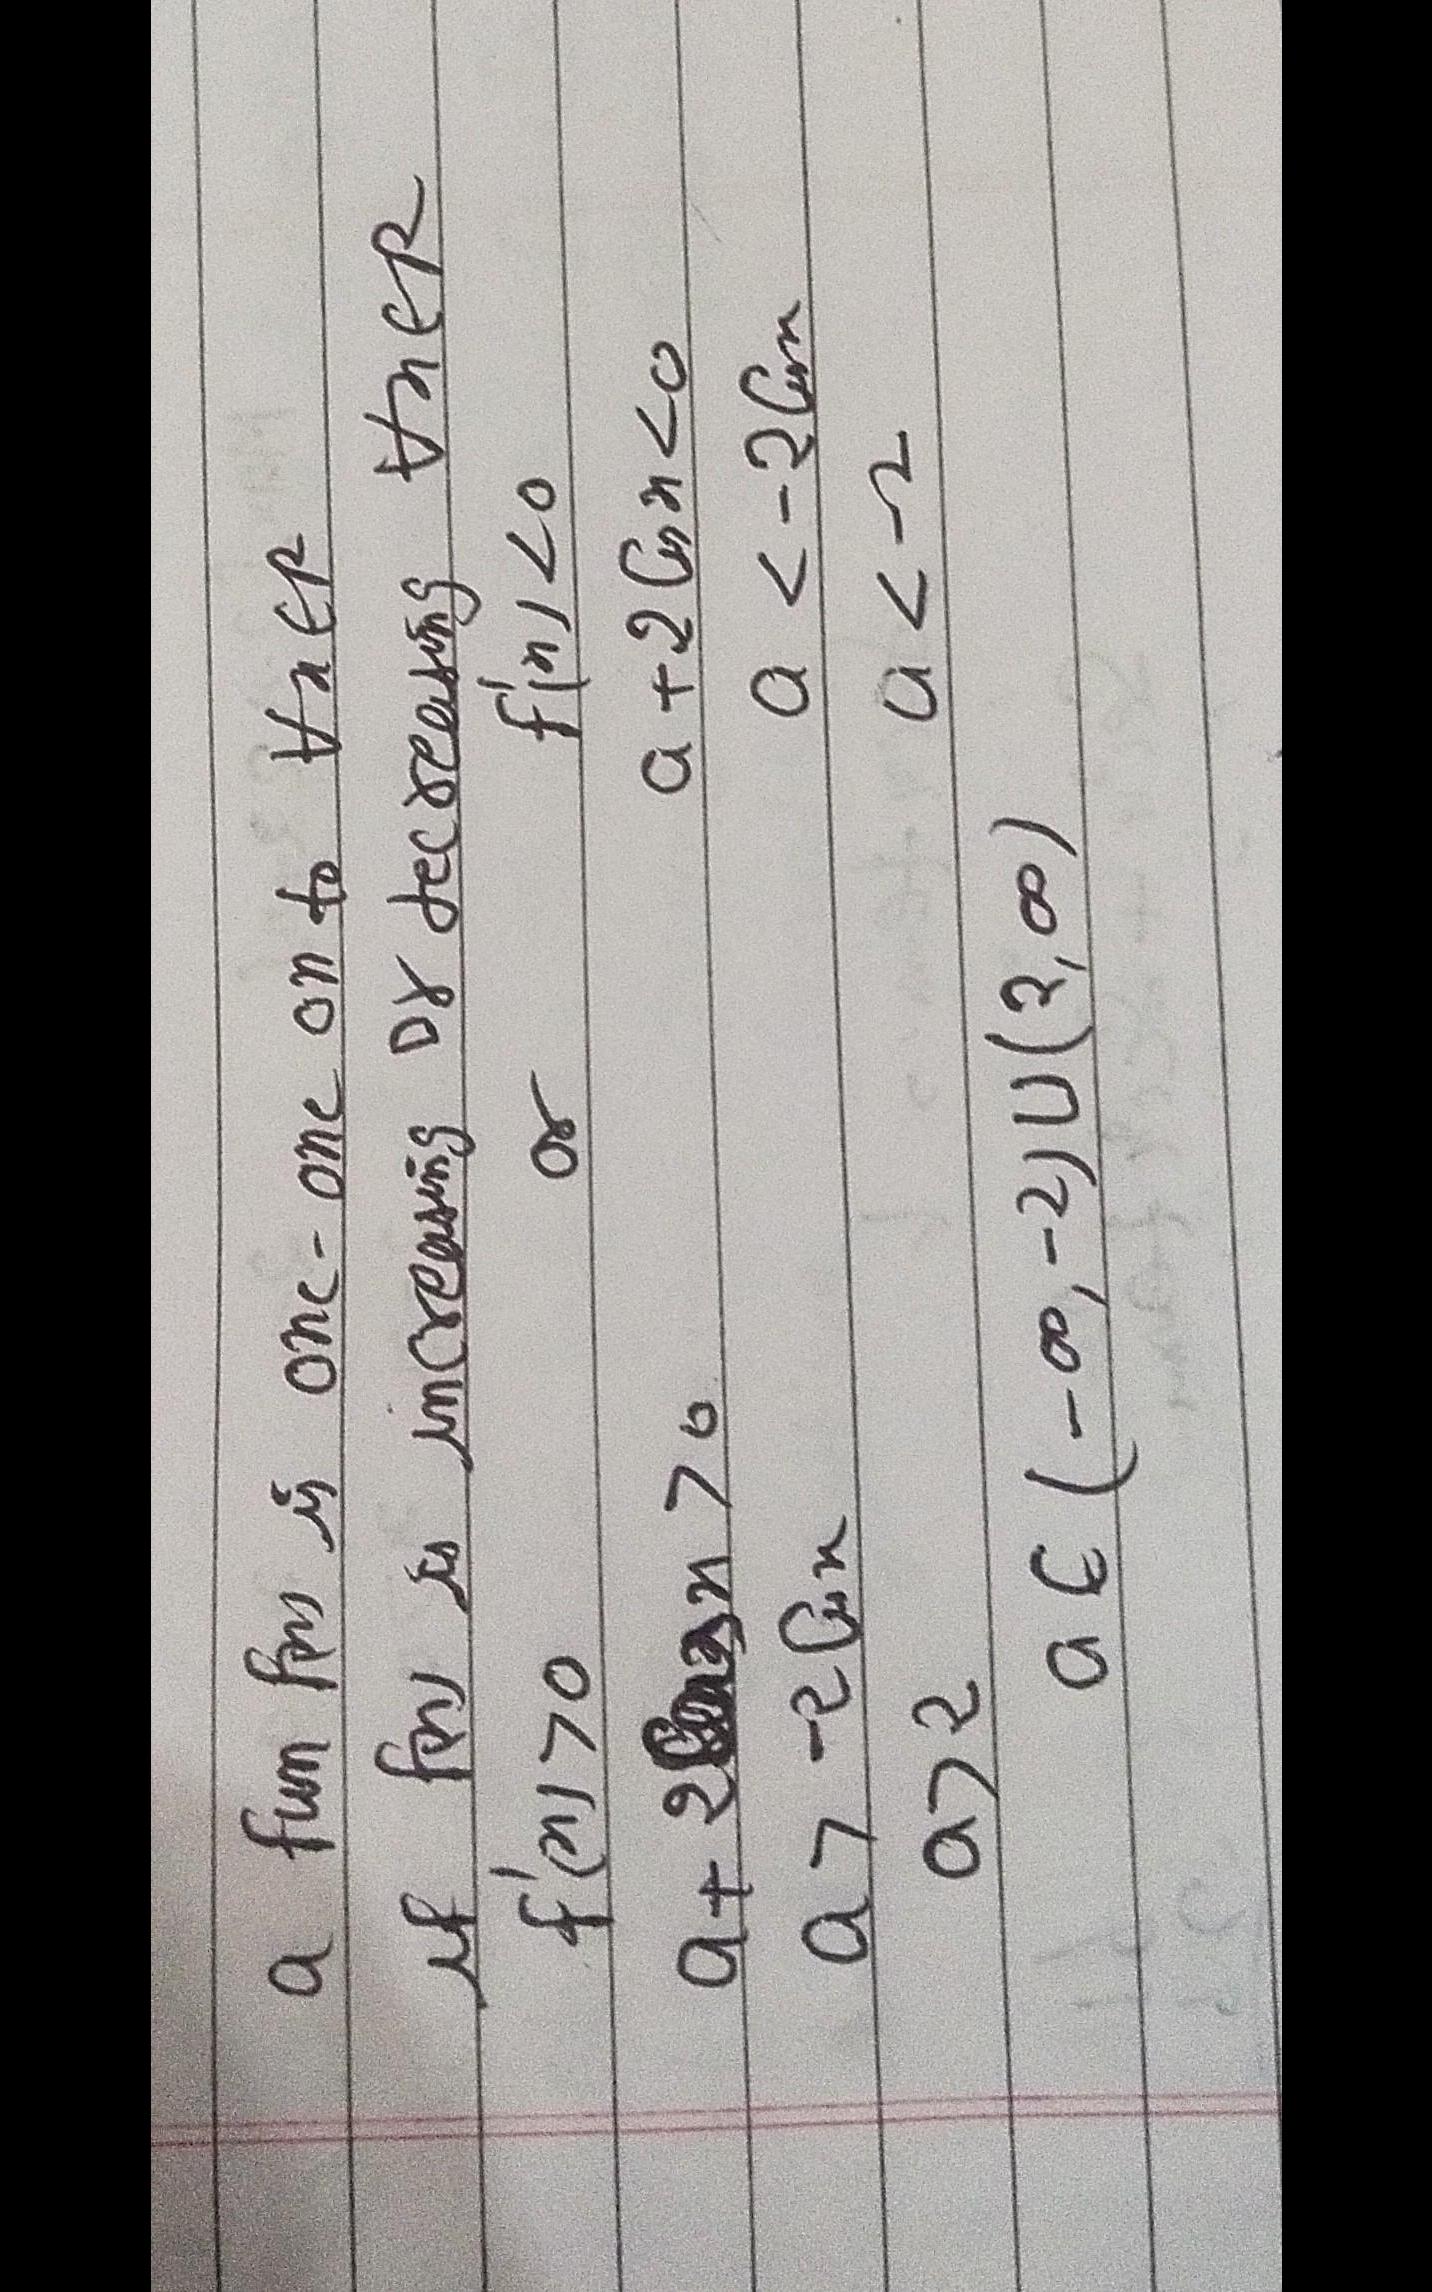 a fun f(x) is one-one on to ∀x∈R
if f(x) is increasing or decreasing ∀x∈R
f'(x)>0 or f'(x)<0
a+2 x>0 a+2Cosx<0
a>-2Cosx a<-2Cosx
a>2 a<-2
a∈(-∞,-2)∪(2,∞)